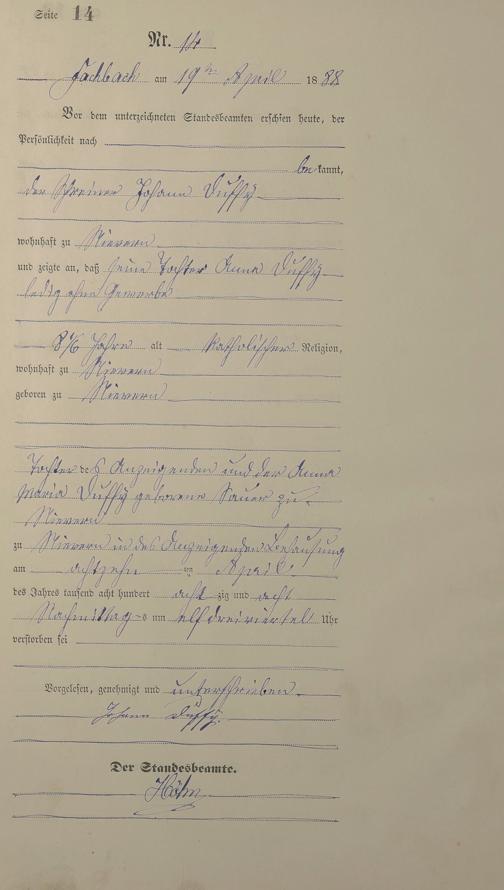 Seite 14
Nr. 14
Fachbach am 19ten April 1888
Vor dem unterzeichneten Standesbeamten erschien heute, der
Persönlichkeit nach
bekannt,
der Schreiner Johann Duffy
wohnhaft zu Nievern
und zeigte an, daß seine Tochter Anna Duffy
ledig ohne Gewerbe
Jahre alt katholischer Religion,
wohnhaft zu Nievern
geboren zu Nievern
Tochter des Anzeigenden und der Anna
Maria Duffy geborene Sauer zu
Nievern
zu Nievern in des Anzeigenden Behausung
am achtzehn ten April
des Jahres tausend acht hundert acht zig und acht
Nachmittags um elf dreiviertel Uhr
verstorben sei
Vorgelesen, genehmigt und unterschrieben.
Johann Duffy.
Der Standesbeamte.